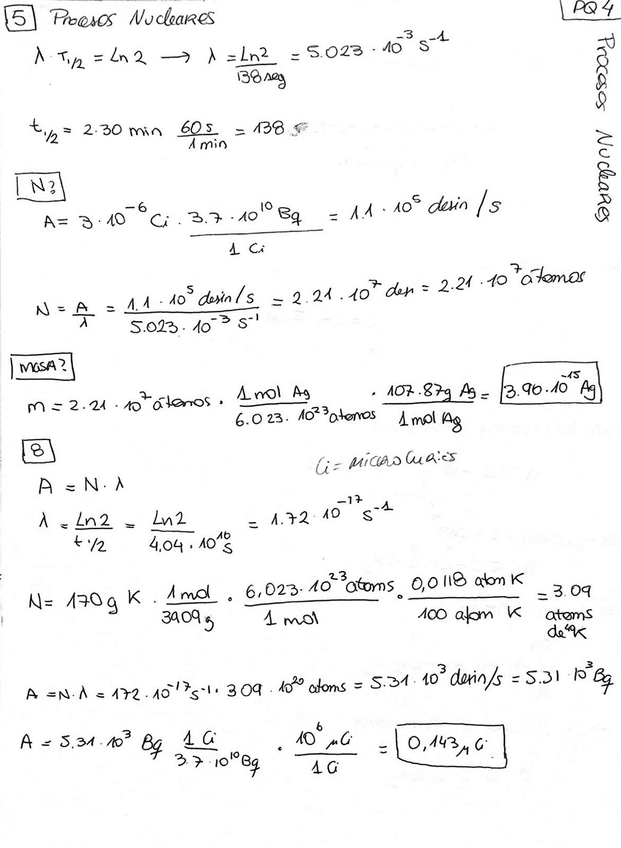 5 Procesos Nucleares
PQ4
Procesos Nucleares
λ · T1/2 = Ln 2 → λ = Ln2 / 138 seg = 5.023 · 10^-3 s^-1
t1/2 = 2.30 min 60 s / 1 min = 138 s
N?
A = 3 · 10^-6 Ci · 3.7 · 10^10 Bq / 1 Ci = 1.1 · 10^5 desin / s
N = A / λ = 1.1 · 10^5 desin/s / 5.023 · 10^-3 s^-1 = 2.21 · 10^7 des = 2.21 · 10^7 átomos
MASA?
m = 2.21 · 10^7 átomos · 1 mol Ag / 6.023 · 10^23 átomos · 107.87g Ag / 1 mol Ag = 3.96 · 10^-15 Ag
8
Ci = microCuries
A = N · λ
λ = Ln 2 / t 1/2 = Ln 2 / 4.04 · 10^16 s = 1.72 · 10^-17 s^-1
N = 170 g K · 1 mol / 3909 g · 6,023 · 10^23 atoms / 1 mol · 0,0118 atom K / 100 atom K = 3.09 atoms de 40K
A = N · λ = 172 · 10^-17 s^-1 · 309 · 10^20 atoms = 5.31 · 10^3 desin/s = 5.31 · 10^3 Bq
A = 5.31 · 10^3 Bq 1 Ci / 3.7 · 10^10 Bq · 10^6 μCi / 1 Ci = 0,143 μCi